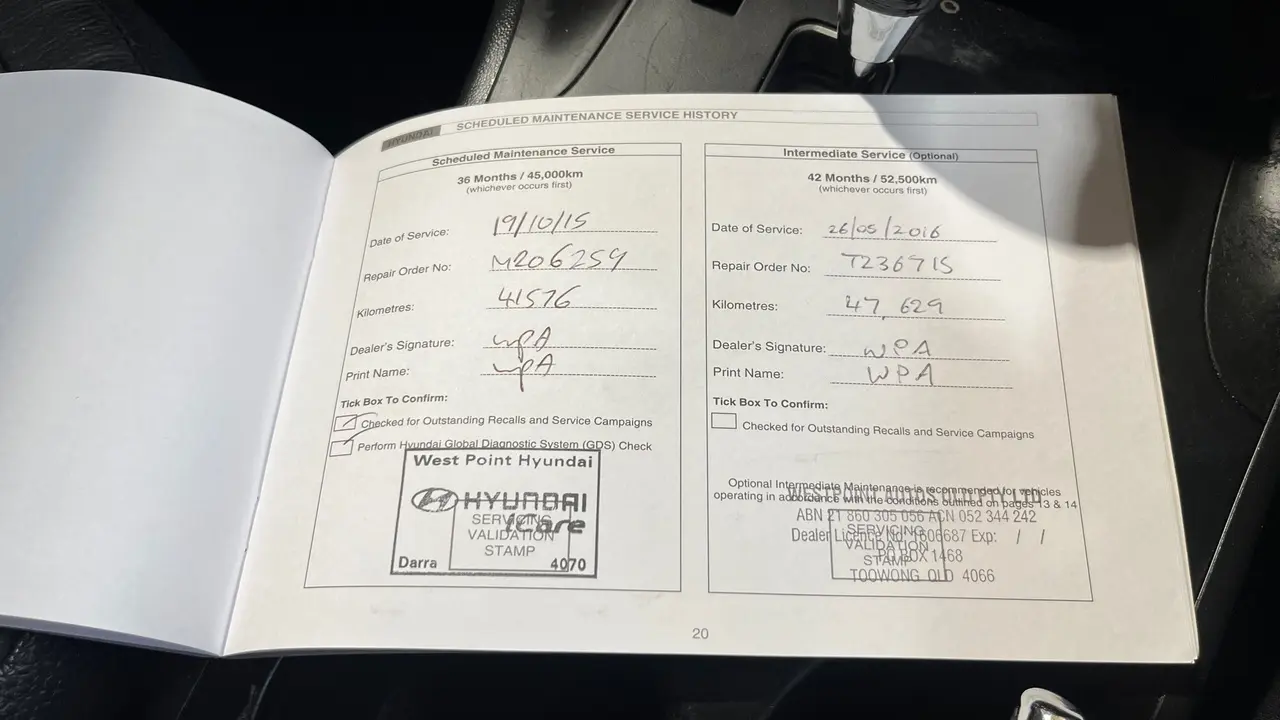 HYUNDAI SCHEDULED MAINTENANCE SERVICE HISTORY
Scheduled Maintenance Service
36 Months / 45,000km
(whichever occurs first)
Date of Service: 19/10/15
Repair Order No: M206259
Kilometres: 41576
Dealer's Signature: WPA
Print Name: WPA
Tick Box To Confirm:
Checked for Outstanding Recalls and Service Campaigns
Perform Hyundai Global Diagnostic System (GDS) Check
West Point Hyundai
HYUNDAI
iCare
SERVICING
VALIDATION
STAMP
Darra 4070
Intermediate Service (Optional)
42 Months / 52,500km
(whichever occurs first)
Date of Service: 26/05/2016
Repair Order No: T236715
Kilometres: 47,629
Dealer's Signature: WPA
Print Name: WPA
Tick Box To Confirm:
Checked for Outstanding Recalls and Service Campaigns
Optional Intermediate Maintenance is recommended for vehicles
operating in accordance with the conditions outlined on pages 13 & 14
WESTPOINT AUTOS QLD PTY LTD
ABN 21 860 305 056 ACN 052 344 242
Dealer Licence No: 1606687 Exp: / /
PO BOX 1468
TOOWONG QLD 4066
SERVICING
VALIDATION
STAMP
20